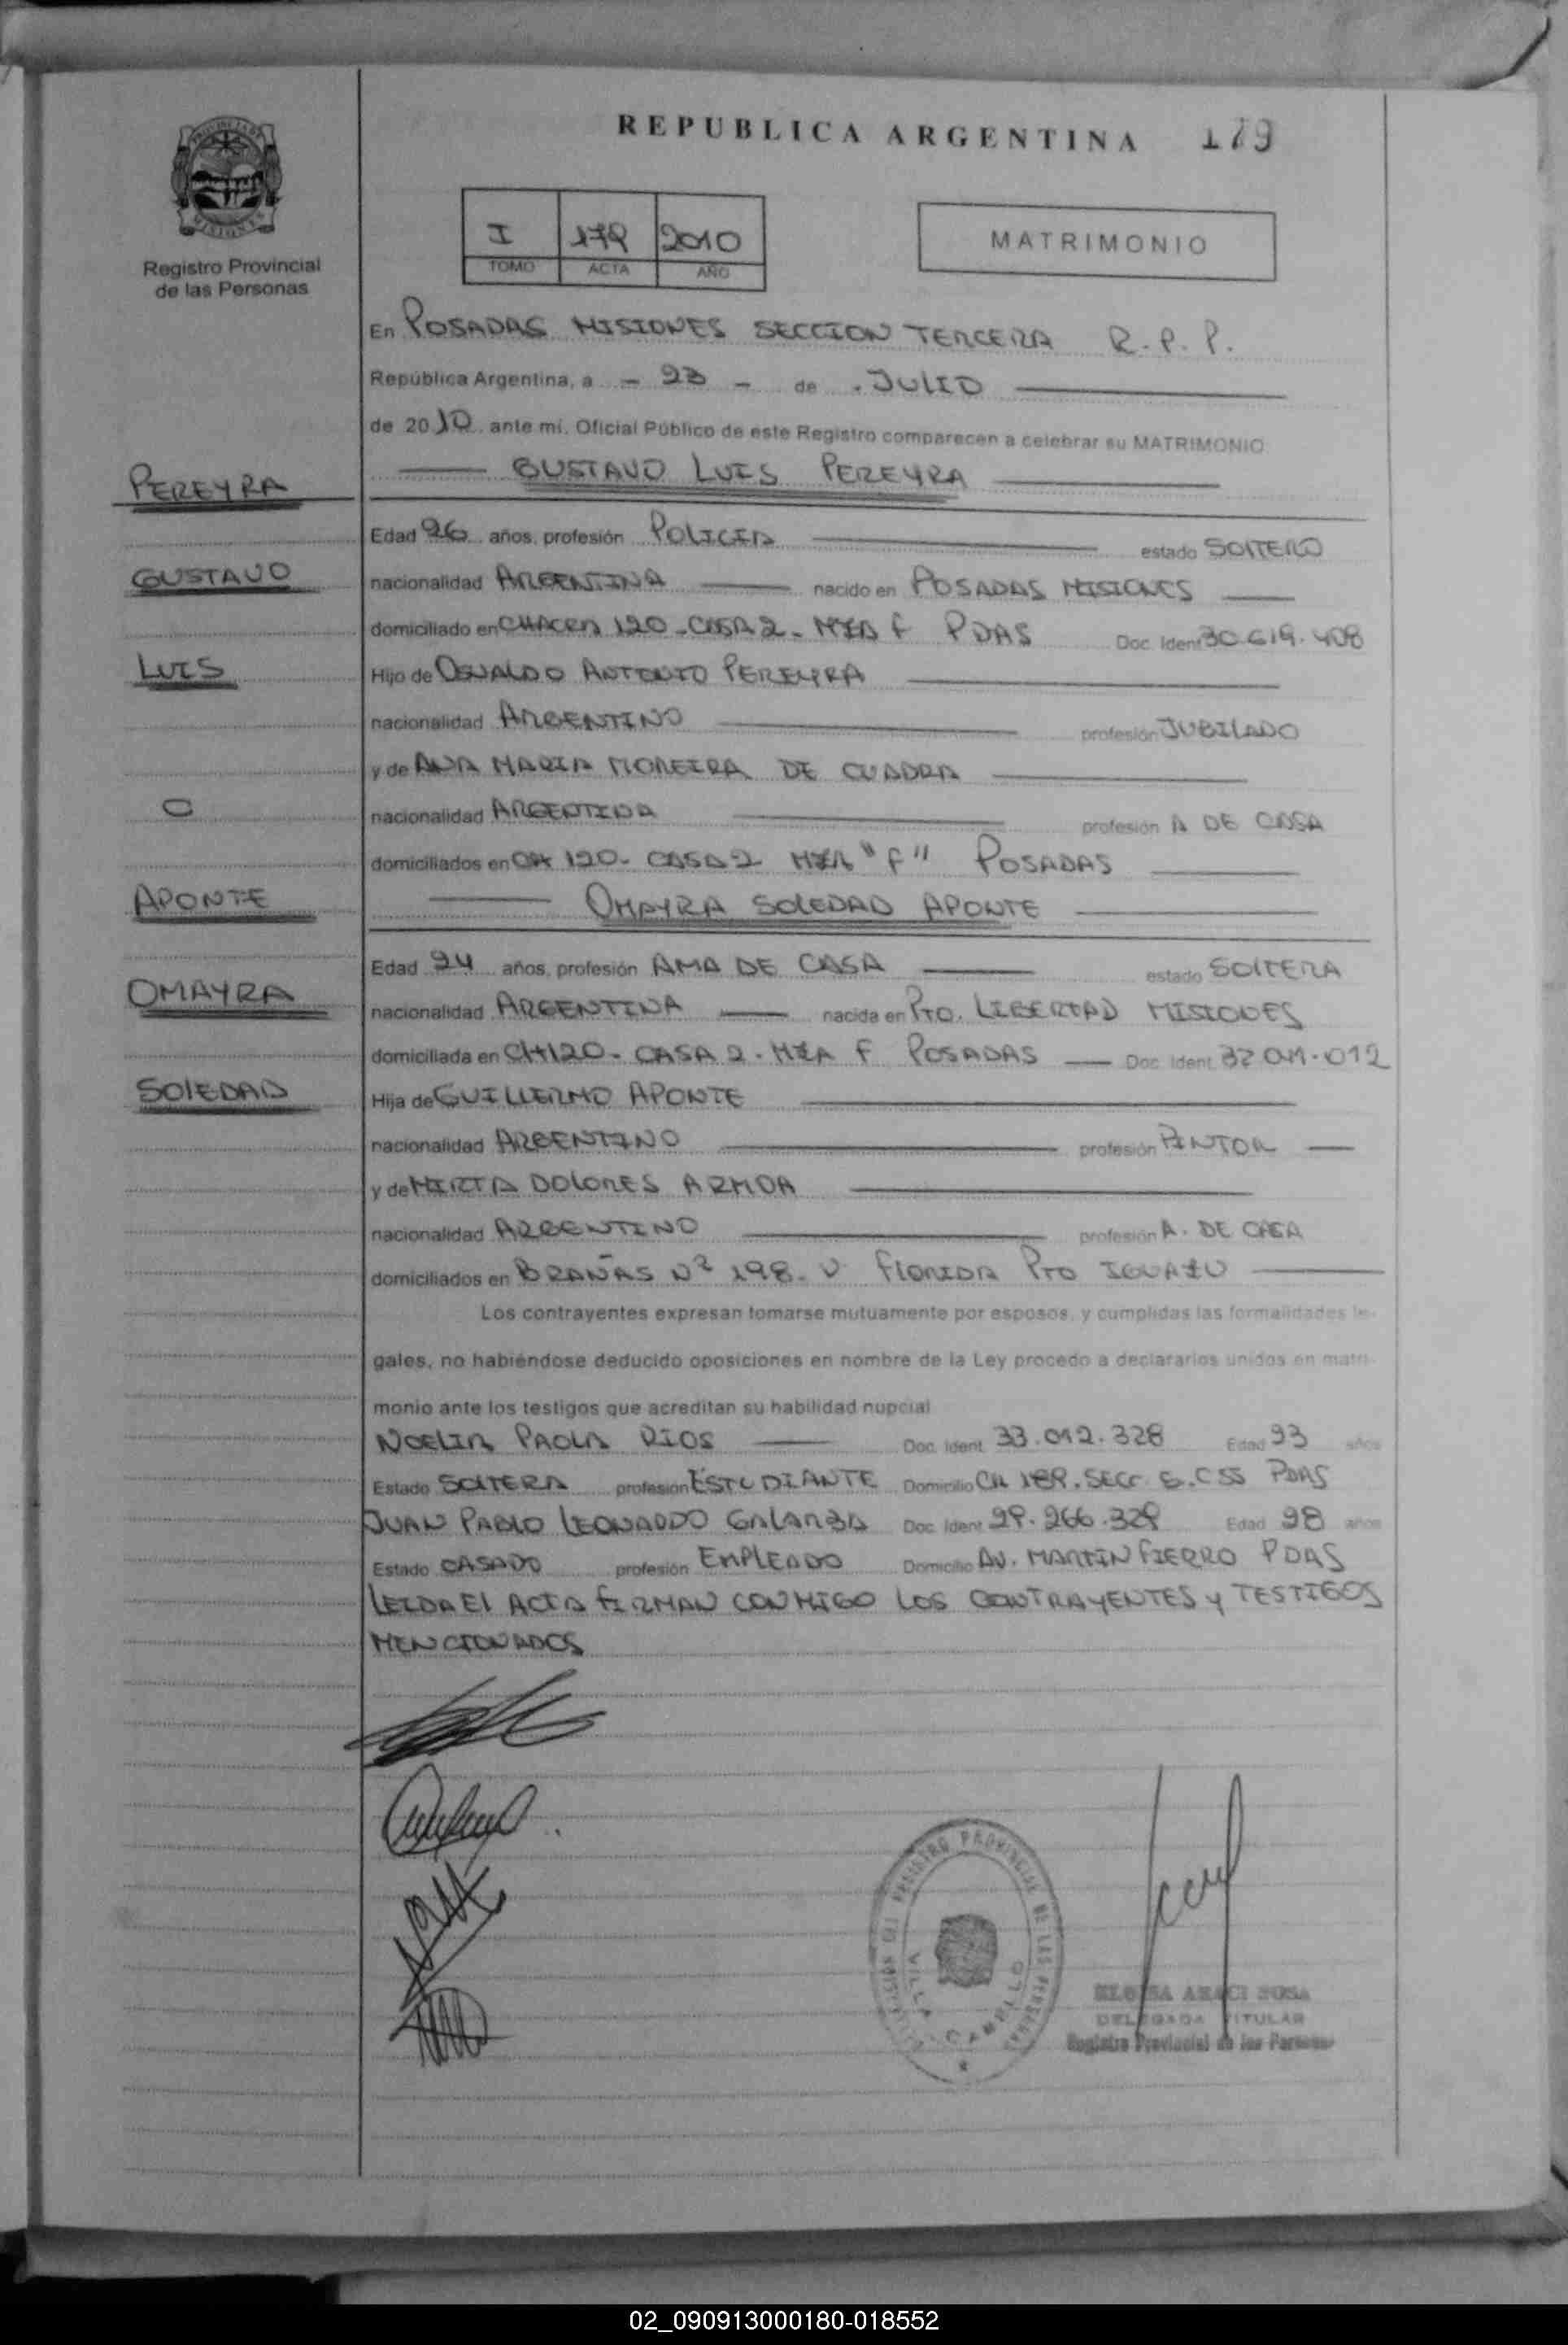 REPUBLICA ARGENTINA 179
Registro Provincial
de las Personas
I 179 2010
TOMO ACTA AÑO
MATRIMONIO
En POSADAS MISIONES SECCION TERCERA R.P.P.
República Argentina, a - 23 - de JULIO
de 2010 ante mí. Oficial Público de este Registro comparecen a celebrar su MATRIMONIO
GUSTAVO LUIS PEREYRA
PEREYRA
Edad 26 años, profesión POLICIA estado SOLTERO
GUSTAVO
nacionalidad ARGENTINA nacido en POSADAS MISIONES
domiciliado en CHACRA 120 - CASA 2 - MZA F PDAS Doc. Ident 30.619.408
LUIS
Hijo de OSVALDO ANTONIO PEREYRA
nacionalidad ARGENTINO profesión JUBILADO
y de ANA MARIA MOREIRA DE CUADRA
C
nacionalidad ARGENTINA profesión A DE CASA
domiciliados en CH 120 - CASA 2 MZA "F" POSADAS
APONTE
OMAYRA SOLEDAD APONTE
Edad 24 años, profesión AMA DE CASA estado SOLTERA
OMAYRA
nacionalidad ARGENTINA nacida en PTO. LIBERTAD MISIONES
domiciliada en CH120 - CASA 2 - MZA F POSADAS Doc. Ident. 32.041.012
SOLEDAD
Hija de GUILLERMO APONTE
nacionalidad ARGENTINO profesión PINTOR
y de MIRTA DOLORES ARMOA
nacionalidad ARGENTINO profesión A. DE CASA
domiciliados en BRAÑAS Nº 198. V FLORIDA PTO IGUAZU
Los contrayentes expresan tomarse mutuamente por esposos, y cumplidas las formalidades le-
gales, no habiéndose deducido oposiciones en nombre de la Ley procedo a declararlos unidos en matri-
monio ante los testigos que acreditan su habilidad nupcial
NOELIA PAOLA RIOS Doc. Ident. 33.012.328 Edad 23 años
Estado SOLTERA profesión ESTUDIANTE Domicilio CH 189. SECC 6. C 55 PDAS
JUAN PABLO LEONARDO GALARZA Doc. Ident. 29.266.329 Edad 28 años
Estado CASADO profesión EMPLEADO Domicilio AV. MARTIN FIERRO PDAS
LEIDA EL ACTA FIRMAN CONMIGO LOS CONTRAYENTES Y TESTIGOS
MENCIONADOS
REGISTRO PROVINCIAL DE LAS PERSONAS
VILLA CABELLO
ELOISA ARACI SOSA
DELEGADA TITULAR
Registro Provincial de las Personas
02_090913000180-018552